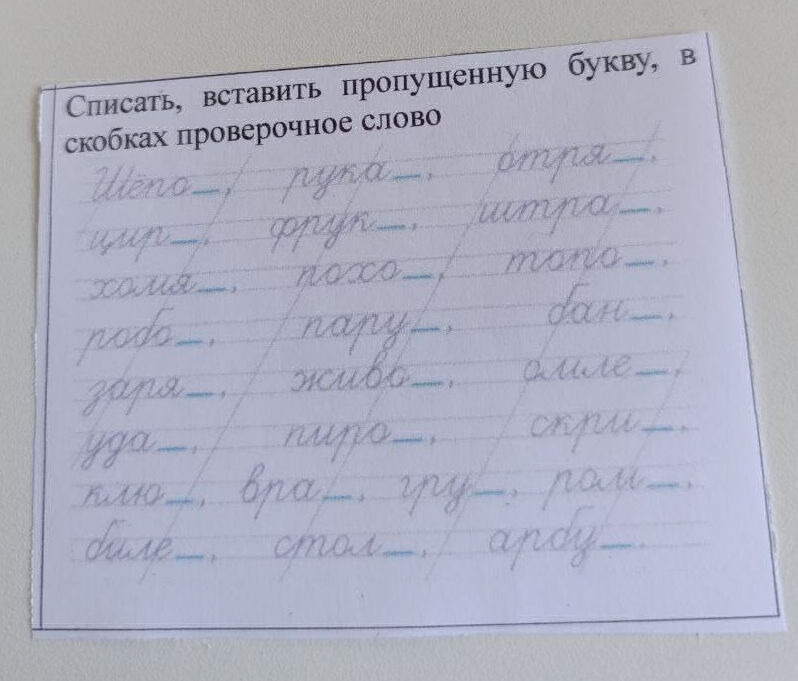 Списать, вставить пропущенную букву, в
скобках проверочное слово
Шёпо_, рука_, отря_,
цир_, фрук_, штра_,
хомя_, похо_, топо_,
робо_, пару_, бан_,
заря_, живо_, омле_,
уда_, пиро_, скри_,
клю_, вра_, гру_, ром_,
биле_, стол_, арбу_.